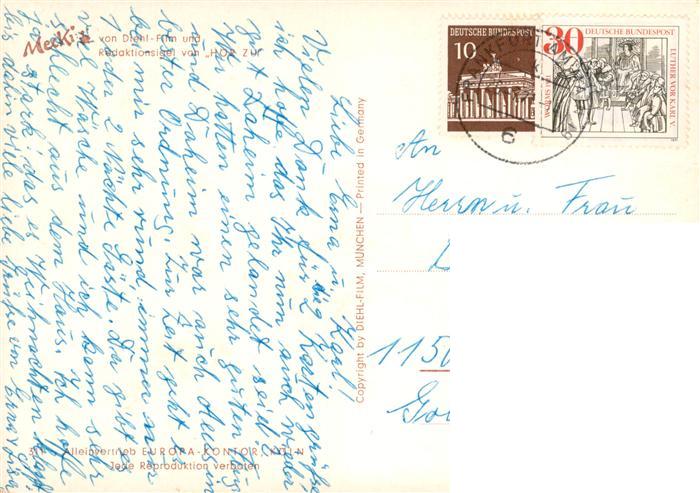 Mecki
von Diehl-Film und
Redaktionsigel von „HÖR ZU"
DEUTSCHE BUNDESPOST
10
30
DEUTSCHE BUNDESPOST
LUTHER VOR KARL V.
WORMS 1521
FRANKFURT
6
An
Herrn u. Frau
115
Copyright by DIEHL-FILM, MÜNCHEN — Printed in Germany
Liebe Erna u. Karl!
Vielen Dank für Karten
ich hoffe, das Ihr nun auch wieder
gut Daheim gelandet seid.
Wir hatten einen sehr guten
und Daheim war auch
bester Ordnung. Zur Zeit geht es
bei mir sehr rund, immer
1 oder 2 Nächte Gäste. Da gibt es
viel Wäsche und ich kann sehr
schlecht aus dem Haus. Ich hoffe
stark, das es Weihnachten klappt
Bis dahin viele liebe Grüße
Alleinvertrieb EUROPA-KONTOR, KÖLN
Jede Reproduktion verboten